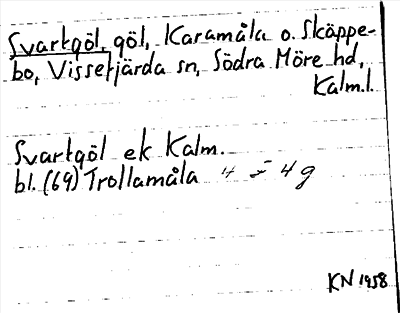 Svartgöl, göl, Karamåla o. Skäppe-
bo, Vissefjärda sn, Södra Möre hd,
Kalm.l.
Svartgöl ek Kalm.
bl. (69) Trollamåla 4 = 4g
KN 1958